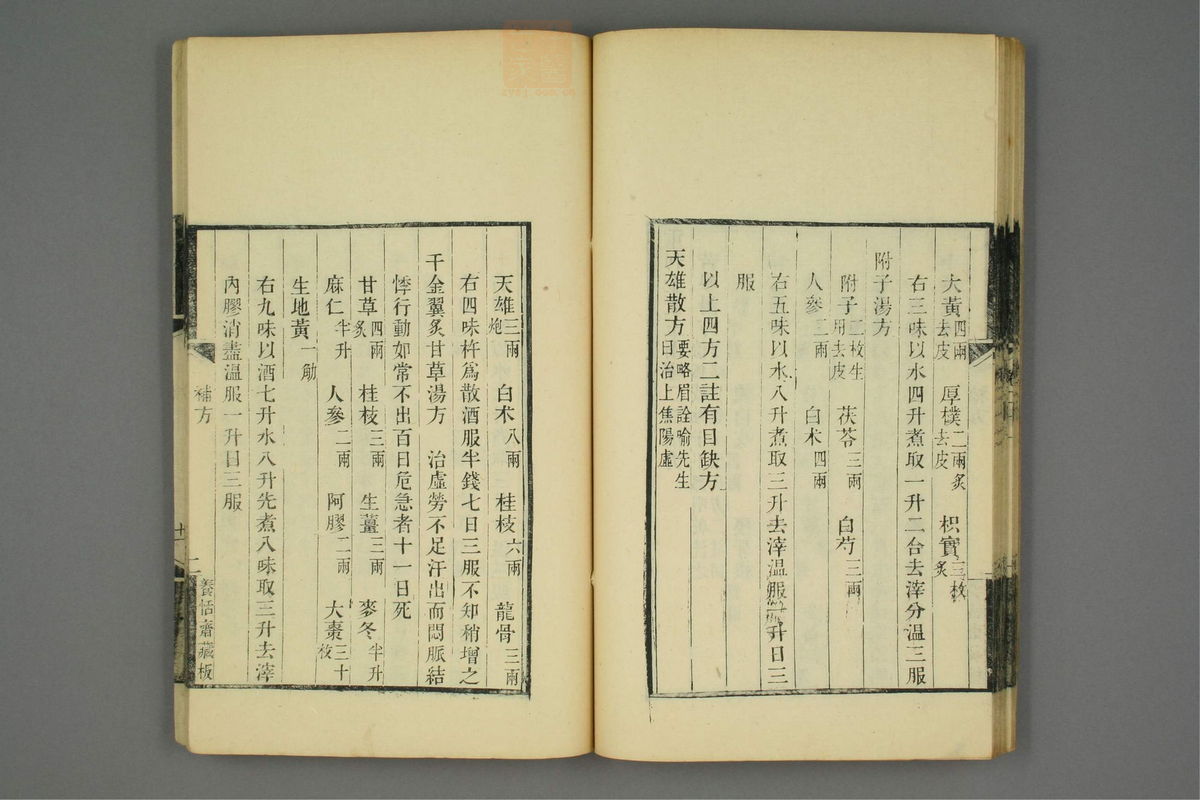 大黃四兩去皮　厚樸二兩炙去皮　枳實三枚炙
右三味以水四升煮取一升二合去滓分溫三服
附子湯方
附子二枚生用去皮　茯苓三兩　白芍三兩
人參二兩　白朮四兩
右五味以水八升煮取三升去滓溫服一升日三
服
以上四方二註有目缺方
天雄散方要略眉詮喻先生曰治上焦陽虛
天雄三兩炮　白朮八兩　桂枝六兩　龍骨三兩
右四味杵爲散酒服半錢七日三服不知稍增之
千金翼炙甘草湯方　治虛勞不足汗出而悶脈結
悸行動如常不出百日危急者十一日死
甘草四兩炙　桂枝三兩　生薑三兩　麥冬半升
麻仁半升　人參二兩　阿膠二兩　大棗三十枚
生地黃一觔
右九味以酒七升水八升先煮八味取三升去滓
內膠消盡溫服一升日三服
補方　十二　養恬齋藏板